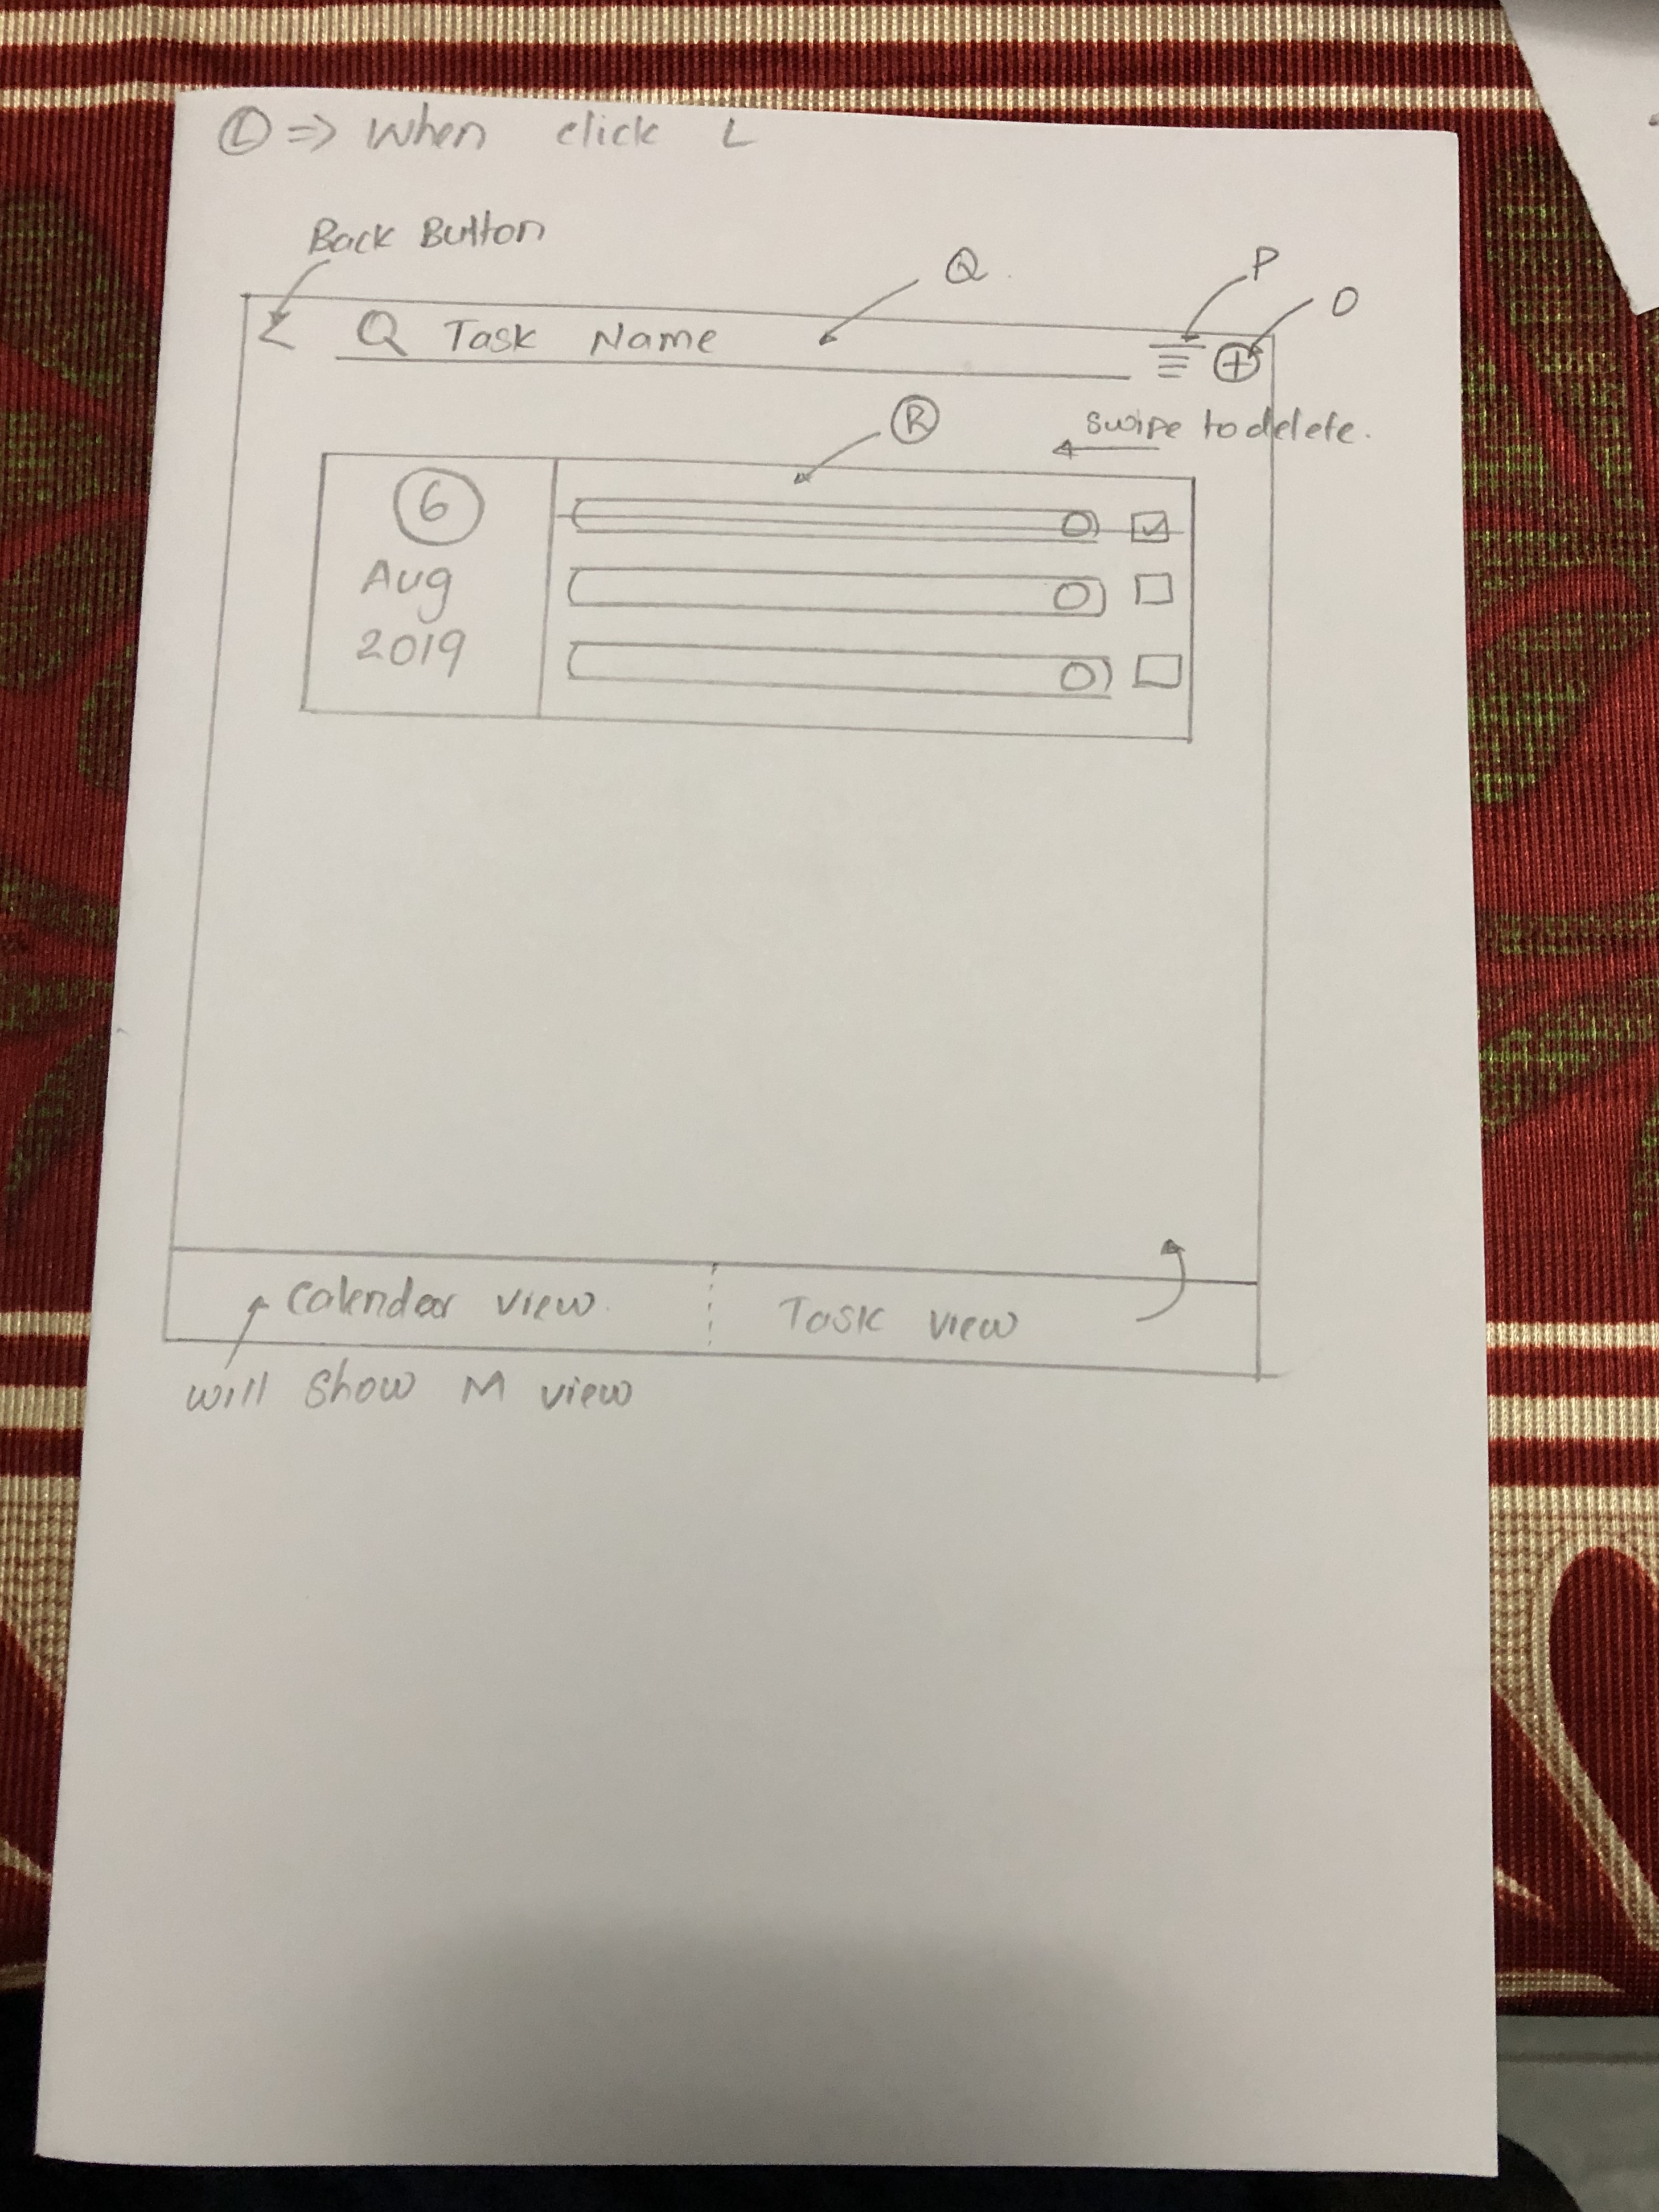 Ⓛ => When click L
Back Button
Q
P
O
< Q Task Name
swipe to delete.
Ⓡ
6
Aug
2019
Calendar view.
Task view
will show M view